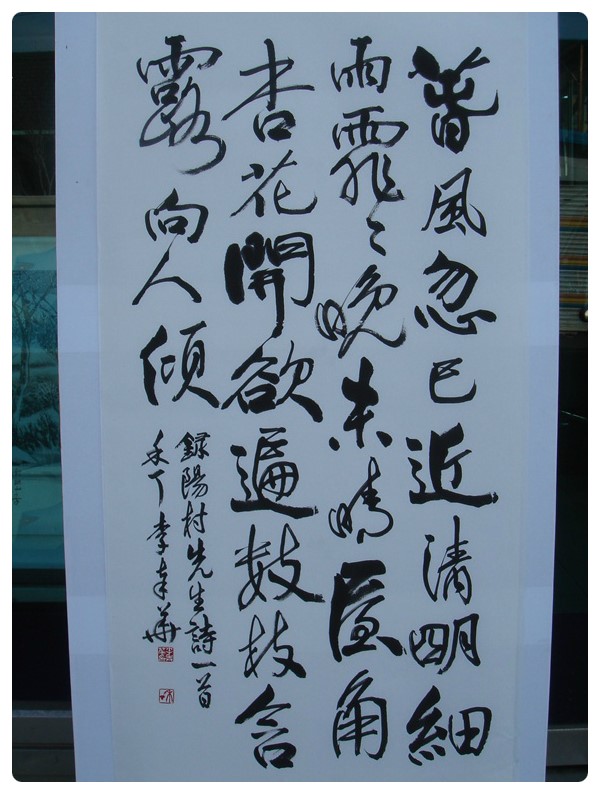 春風忽已近清明細
雨霏〻晚未晴屋角
杏花開欲遍數枝含
露向人傾
錄陽村先生詩一首
禾丁李華